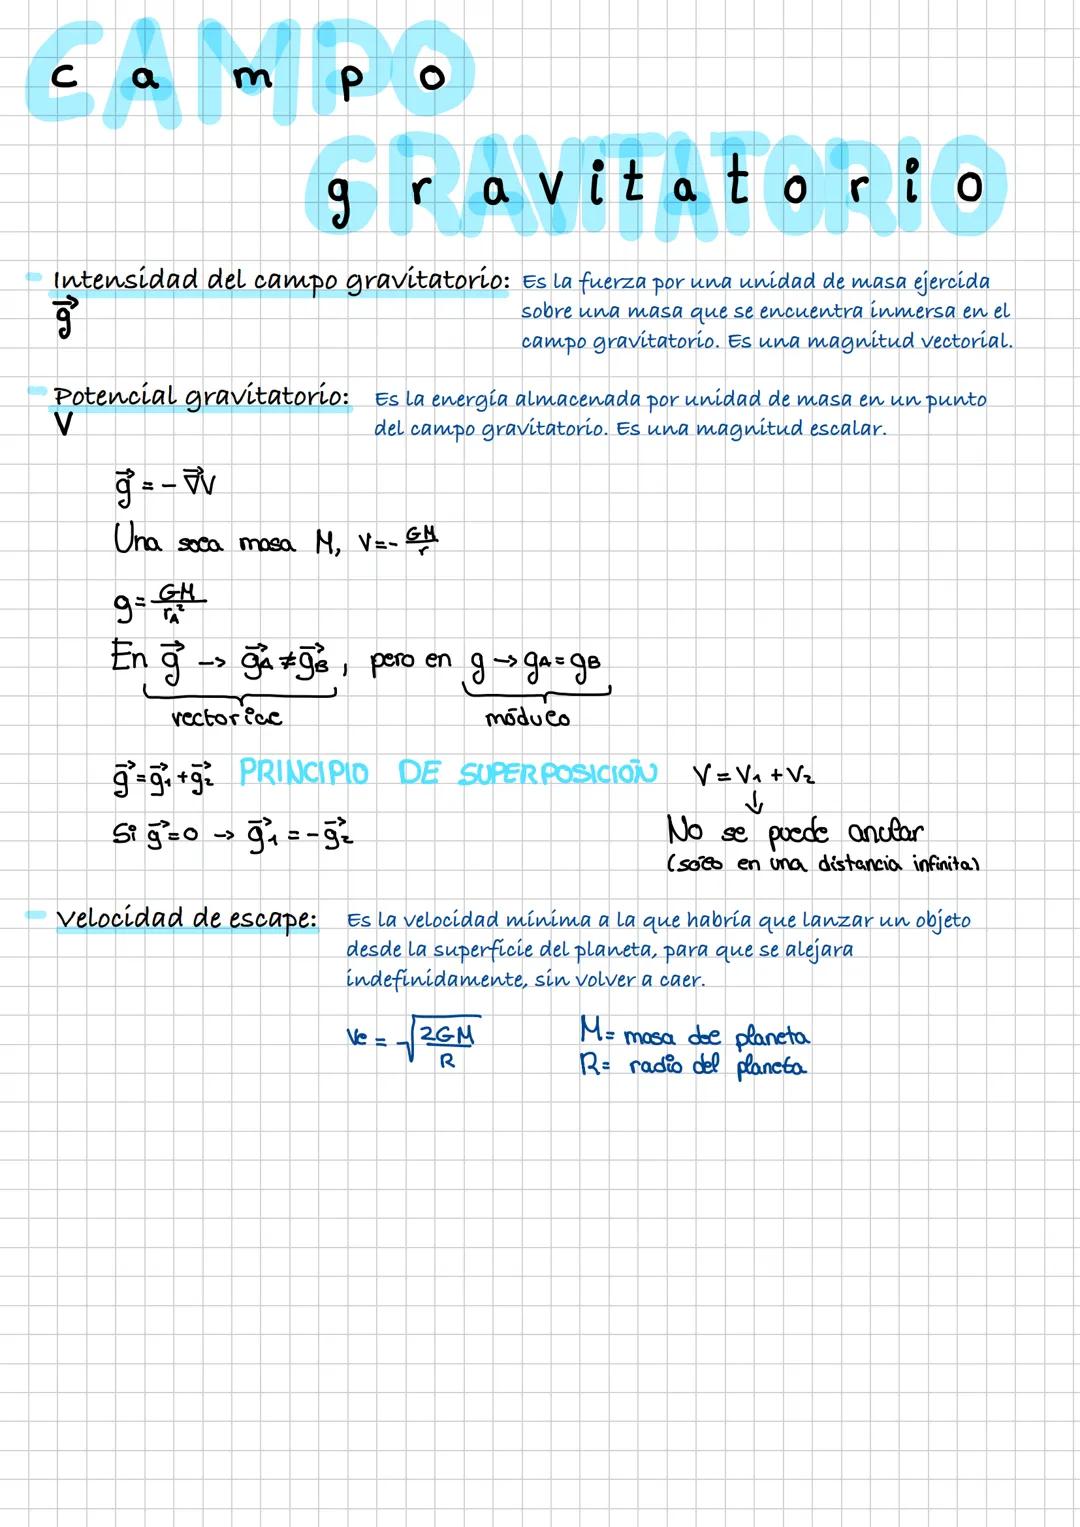 CAMPO
campo
GRAVITATORIO
gravitatorio
Intensidad del campo gravitatorio: Es la fuerza por una unidad de masa ejercida
g⃗ sobre una masa que se encuentra inmersa en el
campo gravitatorio. Es una magnitud vectorial.
Potencial gravitatorio: Es la energía almacenada por unidad de masa en un punto
V del campo gravitatorio. Es una magnitud escalar.
g⃗ = - ∇⃗V
Una sola masa M, V=- GM/r
g= GM/r_A²
En g⃗ -> g⃗_A ≠ g⃗_B, pero en g -> g_A = g_B
vectorial módulo
g⃗ = g⃗₁ + g⃗₂ PRINCIPIO DE SUPERPOSICIÓN V = V₁ + V₂
↓
Si g⃗=0 -> g⃗₁ = - g⃗₂ No se puede anular
(sólo en una distancia infinita)
Velocidad de escape: Es la velocidad mínima a la que habría que lanzar un objeto
desde la superficie del planeta, para que se alejara
indefinidamente, sin volver a caer.
Ve = √(2GM/R) M= masa del planeta
R= radio del planeta